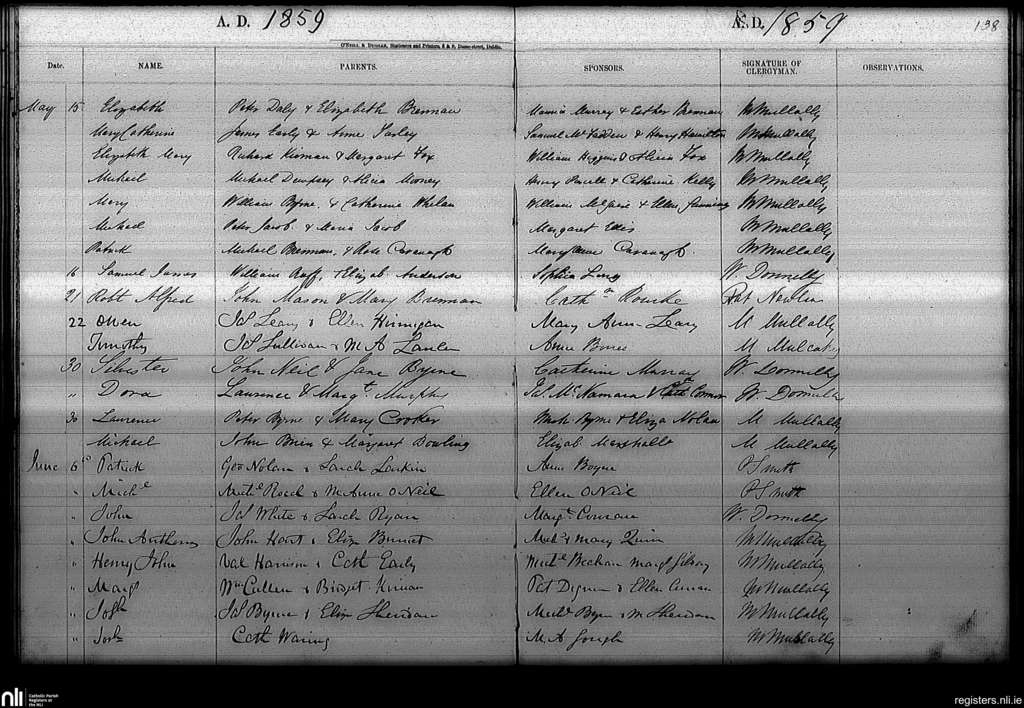 A. D. 1859
A. D. 1859 138
O'Neill & Duggan, Stationers and Printers, Dame-street, Dublin.
Date. NAME. PARENTS. SPONSORS. SIGNATURE OF CLERGYMAN. OBSERVATIONS.
May 15 Elizabeth Peter Daly & Elizabeth Brennan Murray & Esther Brennan M Mullally
Mary Catherine James Early & Anne Samuel McFadden & Henry Hamilton M Mullally
Elizabeth Mary Richard Kirwan & Margaret Fox William Higgins & Alicia Fox M Mullally
Michael Michael Dempsey & Alicia Mooney Henry & Catherine Kelly M Mullally
Mary William Byrne & Catherine Whelan William & Ellen M Mullally
Michael Peter Jacob & Maria Jacob Margaret Ellis M Mullally
Patrick Michael Brennan & Rose Cavanagh Maryanne Cavanagh M Mullally
16 Samuel James William & Elizab Anderson Sophia Long W. Donnelly
21 Robt Alfred John Mason & Mary Brennan Cathn Rourke Pat
22 Owen Js Leary & Ellen Hinnigan Mary Anne Leary M Mullally
Timothy Js Sullivan & M A Lawler Anne M
30 Silvester John Neil & Jane Byrne Catherine Murray W. Donnelly
" Dora Laurence & Margt Murphy Js McNamara & Cath Connor W Donnelly
30 Laurence Peter Byrne & Mary Cooker Byrne & Eliza Nolan M Mullally
Michael John Brien & Margaret Dowling Elizab Marshall M Mullally
June 6th Patrick Geo Nolan & Sarah Larkin Anne Boyne P Smith
" Michl & M Anne O Neil Ellen O Neil P Smith
" John Js White & Sarah Ryan Margt W. Donnelly
" John Anthony John Hart & Eliza Michl & Mary Quin M Mullally
" Henry John Val Harrison & Cath Early Michl Meehan Margt M Mullally
" Margt Wm Cullen & Bridget Kirwan Pat Dignan & Ellen M Mullally
" Josh Js Byrne & Eliza Sheridan Michl Byrne & M Sheridan M Mullally
" Josh Cath Waring M A Gough M Mullally
nli Catholic Parish Registers at the NLI
registers.nli.ie